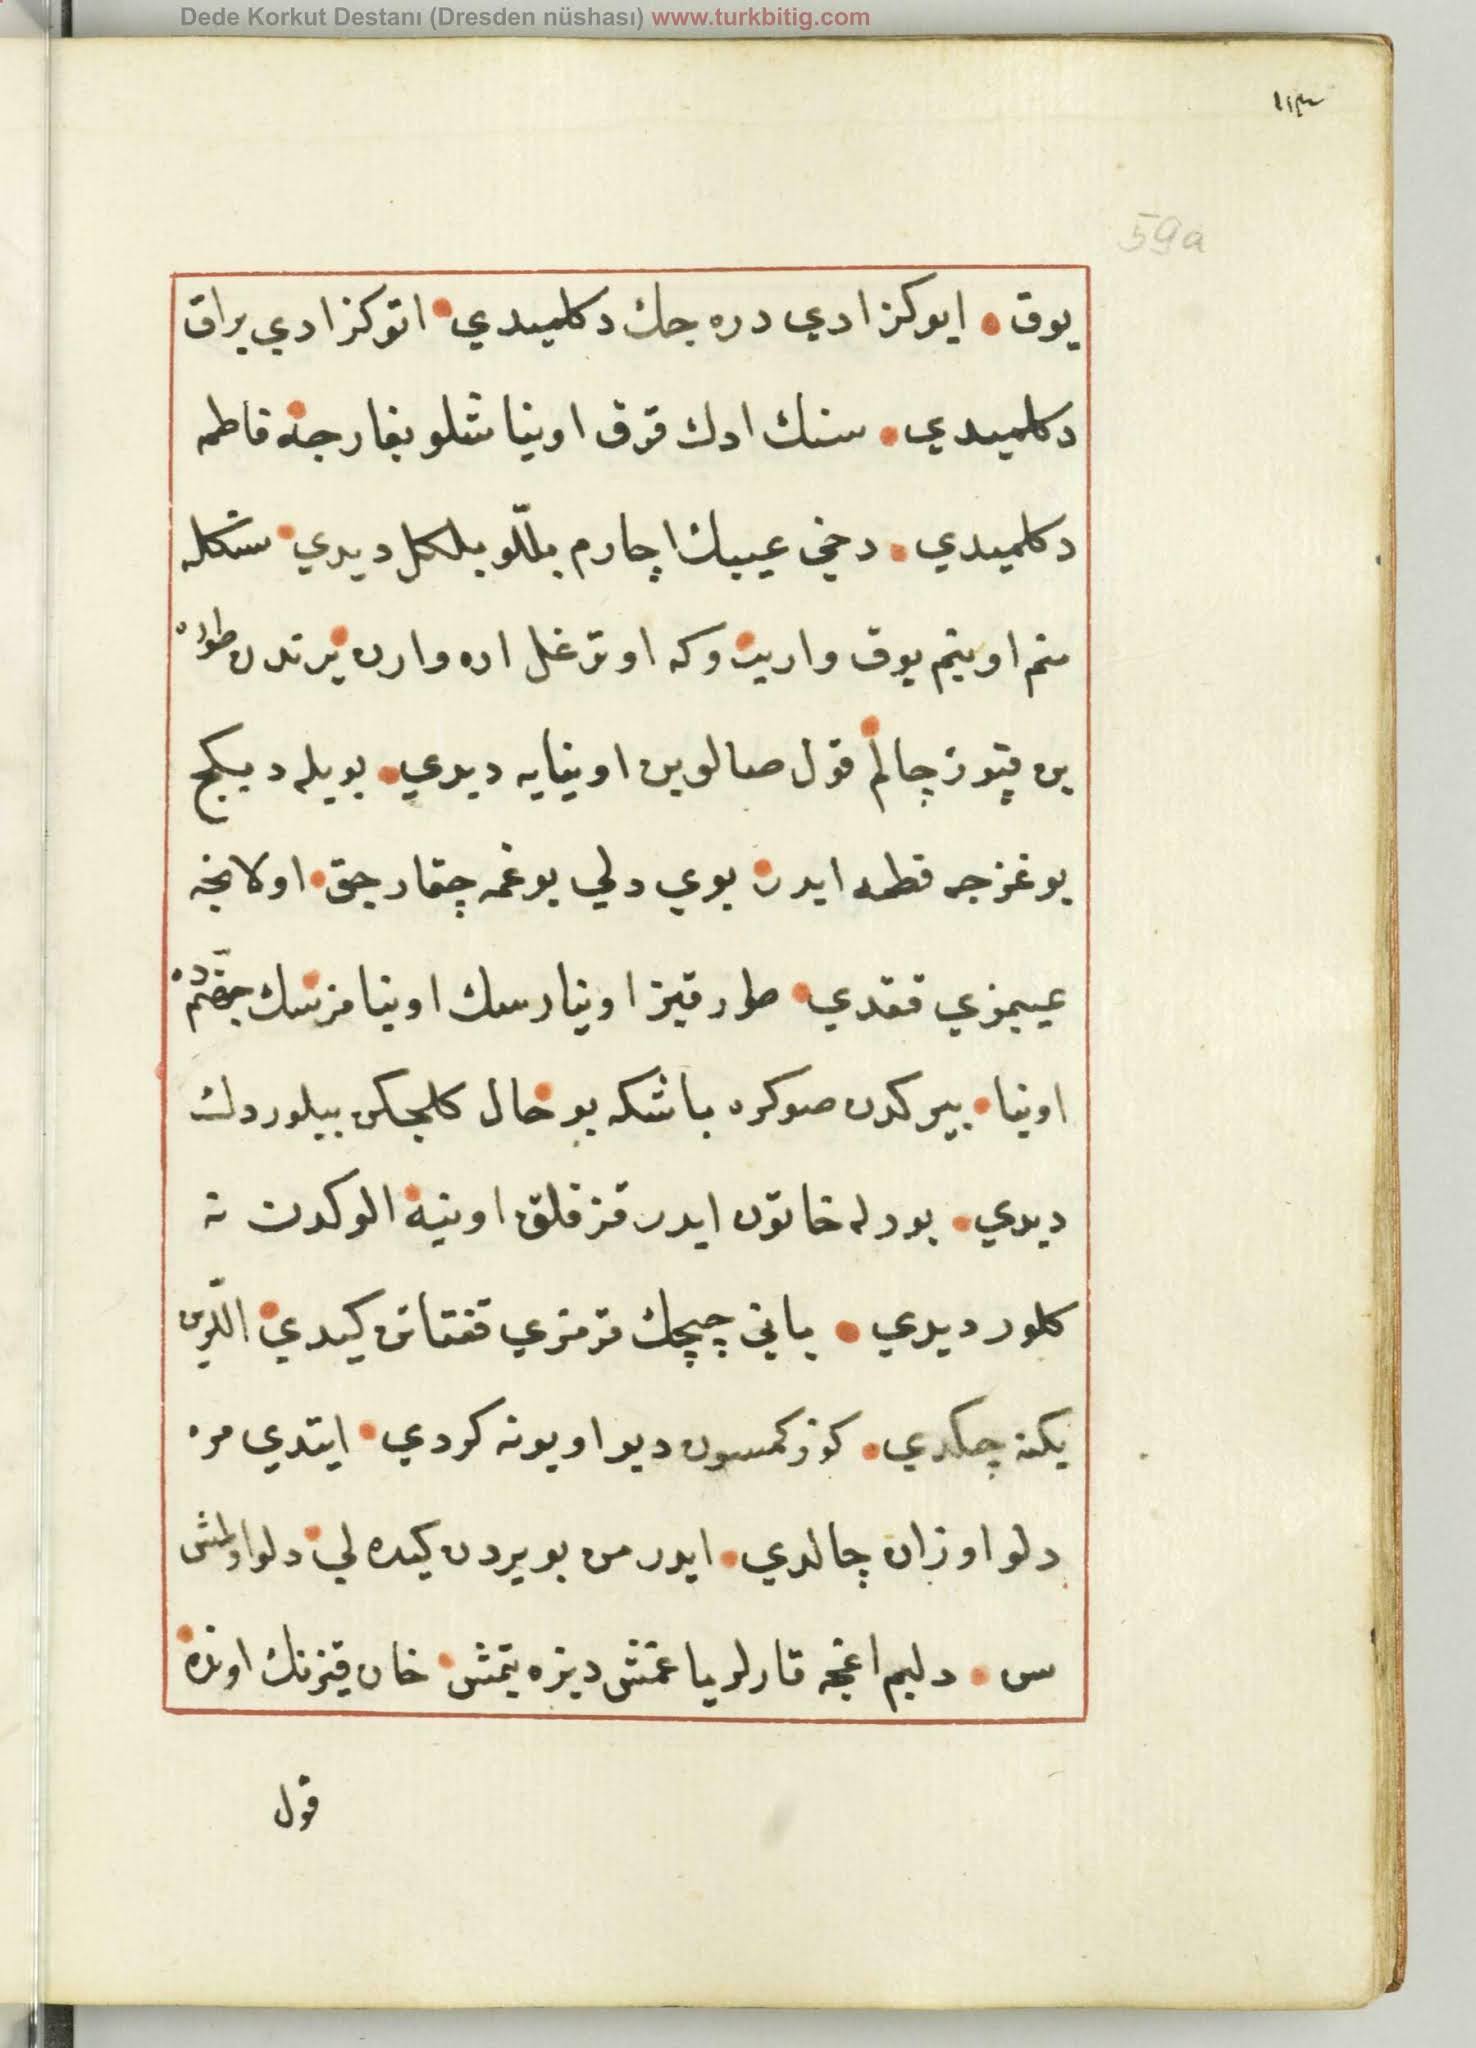 Dede Korkut Destanı (Dresden nüshası) www.turkbitig.com
١١٣
59a
يوق • ايوكز ادي دره جك دكلميدي • اتوكز ادي براق
دكلميدي • سنك ادك قرق اويناشلو بغازجه فاطمه
دكلميدي • دخي عيبك اچارم بللو بلكل ديدي • سنكله
منم اوينم يوق • واريروكه اوترغل اره وارن يرندن طوره
ين قپوز چالم قول صالوين اوينايه ديدي • بويله ديكج
بوغزجه فطمه ايدر • بوي دلي بوغمه چقارجق • اولانجه
عيبمزي ققدي • طور قيز اوينارسك اوينامزسك جهنمده
اوينا • بيركدن صوكره باشكه بو حال كلجكن بيلوردك
ديدي • بورله خاتون ايدر قز قلق اوينه الوكدن نه
كلور ديدي • باني چيچك قرمزي قفتانن كيدي • اللرين
يكنه چكدي • كوزكمسون ديو اويونه كردي • ايتدي مره
دلو اوزان چالدي • ايدر من بو يردن كيده لي دلو اولمش
سن • دليم اغجه قارلر ياغمش ديزه يتمش • خان قيزنك اونده
قول